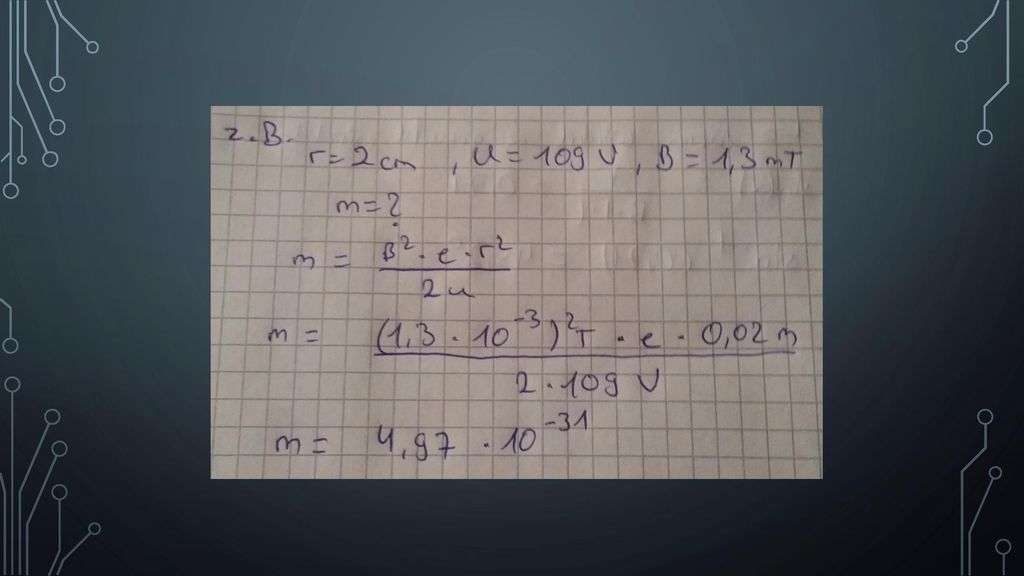 z.B.
r = 2 cm , U = 109 V , B = 1,3 mT
m = ?
m = B² · e · r²
2 u
m = (1,3 · 10⁻³)² T · e · 0,02 m
2 · 109 V
m = 4,97 · 10⁻³¹